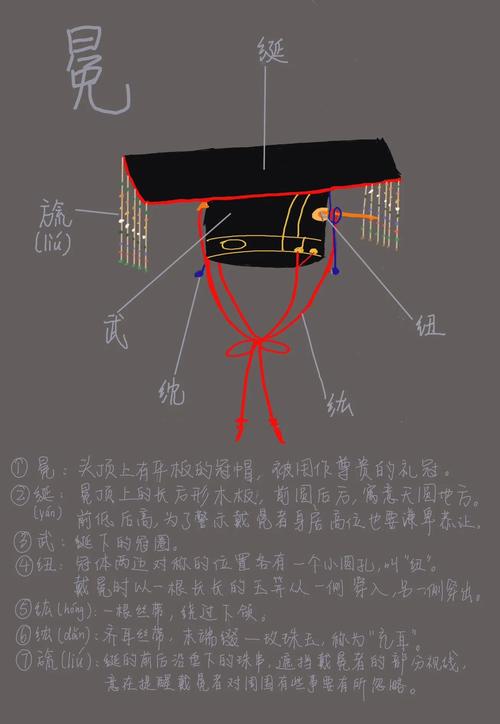 冕
綖
旒
(liú)
武
纽
紞
紘
①冕：头顶上有平板的冠帽，被用作尊贵的礼冠。
②綖：冕顶上的长方形木板，前圆后方，寓意天圆地方。
(yán) 前低后高，为了警示戴冕者身居高位也要谦卑恭让。
③武：綖下的冠圈。
④纽：冠体两边对称的位置各有一个小圆孔，叫“纽”。
戴冕时以一根长长的玉笄从一侧穿入，另一侧穿出。
⑤紘(hóng)：一根丝带，绕过下颌。
⑥紞(dǎn)：齐耳丝带，末端缀一玫珠玉，称为“充耳”。
⑦旒(liú)：綖的前后沿垂下的珠串，遮挡戴冕者的部分视线，
意在提醒戴冕者对周围有些事要有所忽略。